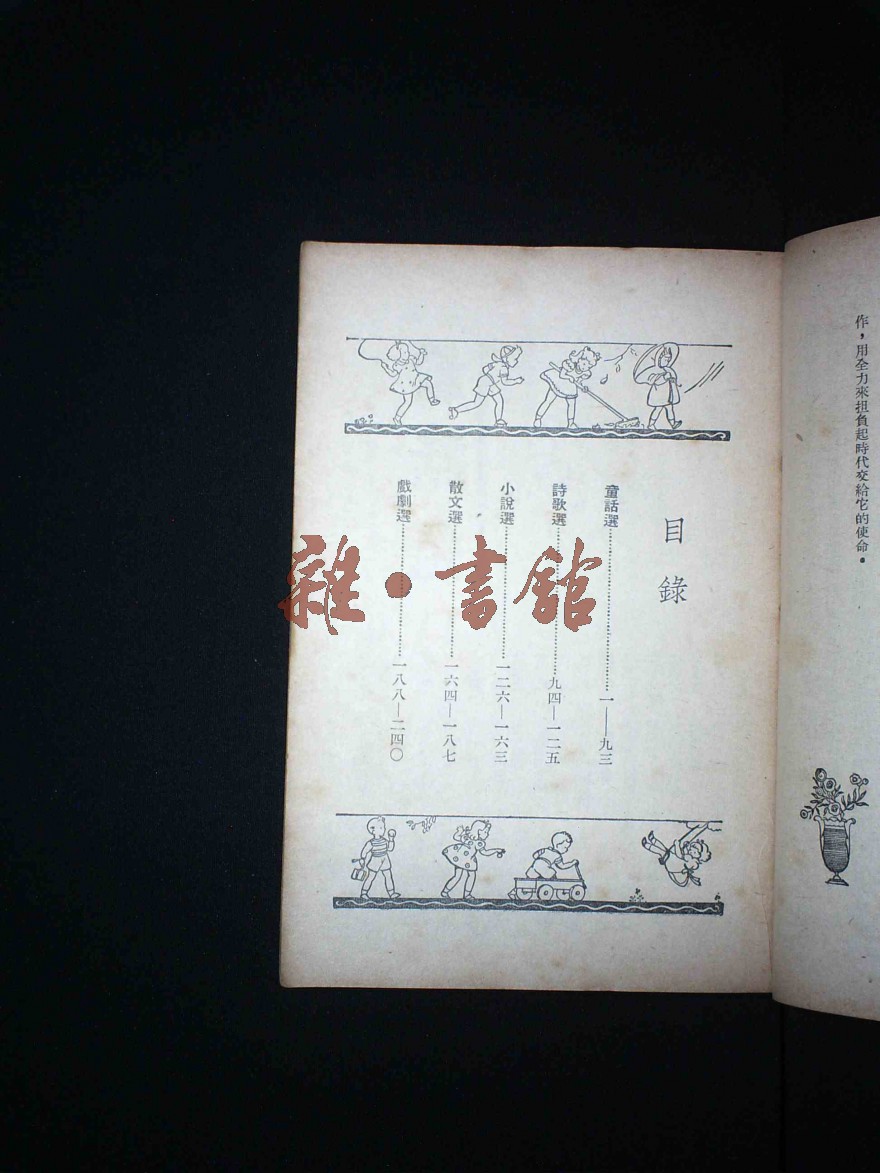 作，用全力來担負起時代交給它的使命。
目錄
童話選……………………一——九三
詩歌選……………………九四—一二五
小說選……………………一二六—一六三
散文選……………………一六四—一八七
戲劇選……………………一八八—二四〇
雜·書館